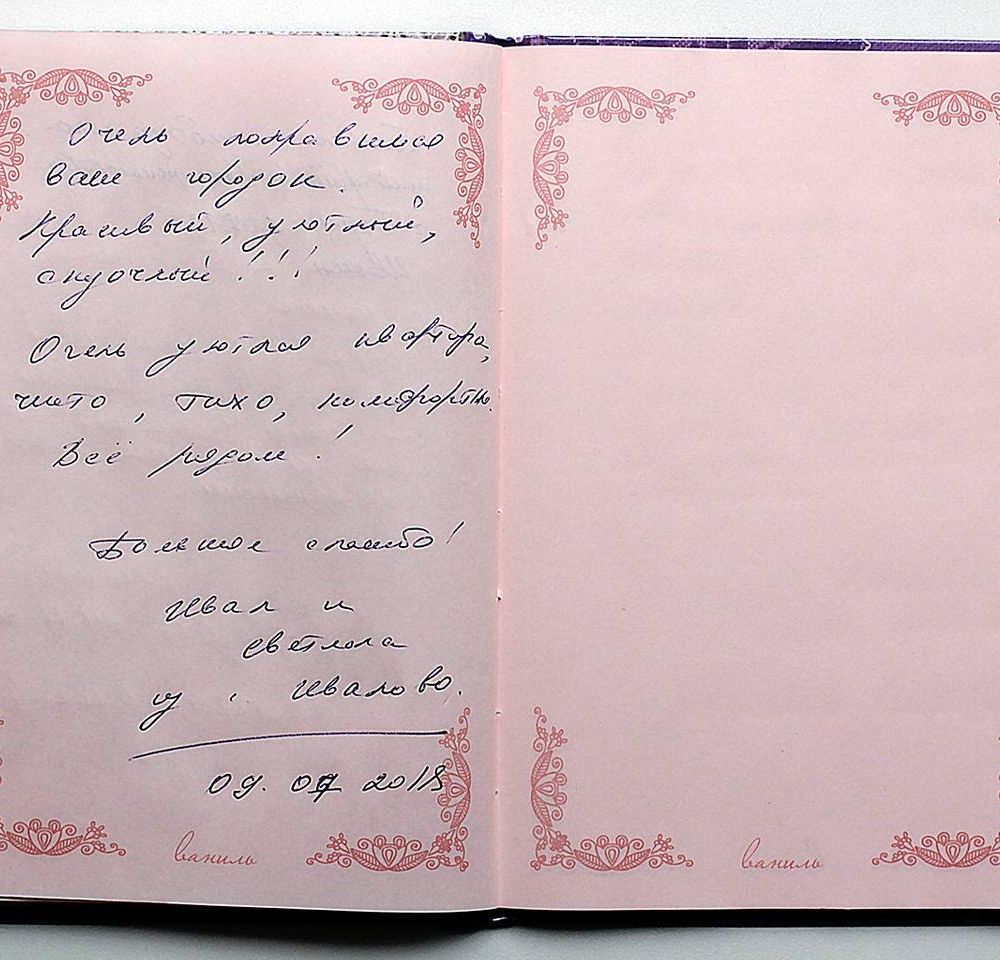 Очень понравился
ваш городок.
Красивый, уютный,
сказочный!!!
Очень уютная квартира,
чисто, тихо, комфортно.
Всё рядом!
Большое спасибо!
Иван и
Светлана
из г. Иваново.
09.07 2018
ваниль
ваниль